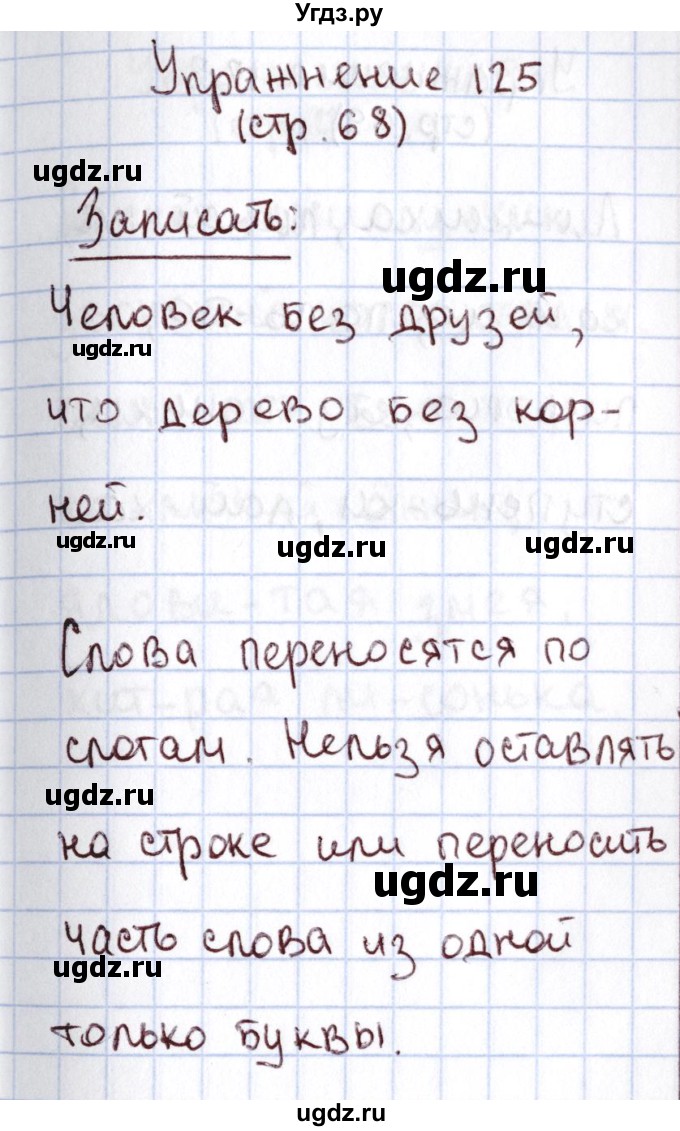 Угдз.ру
Упражнение 125
(стр. 68)
ugdz.ru
Записать:
ugdz.ru
Человек без друзей,
ugdz.ru
что дерево без кор-
ней.
ugdz.ru
ugdz.ru
ugdz.ru
Слова переносятся по
слогам. Нельзя оставлять
ugdz.ru
на строке или переносить
ugdz.ru
часть слова из одной
ugdz.ru
только буквы.
ugdz.ru